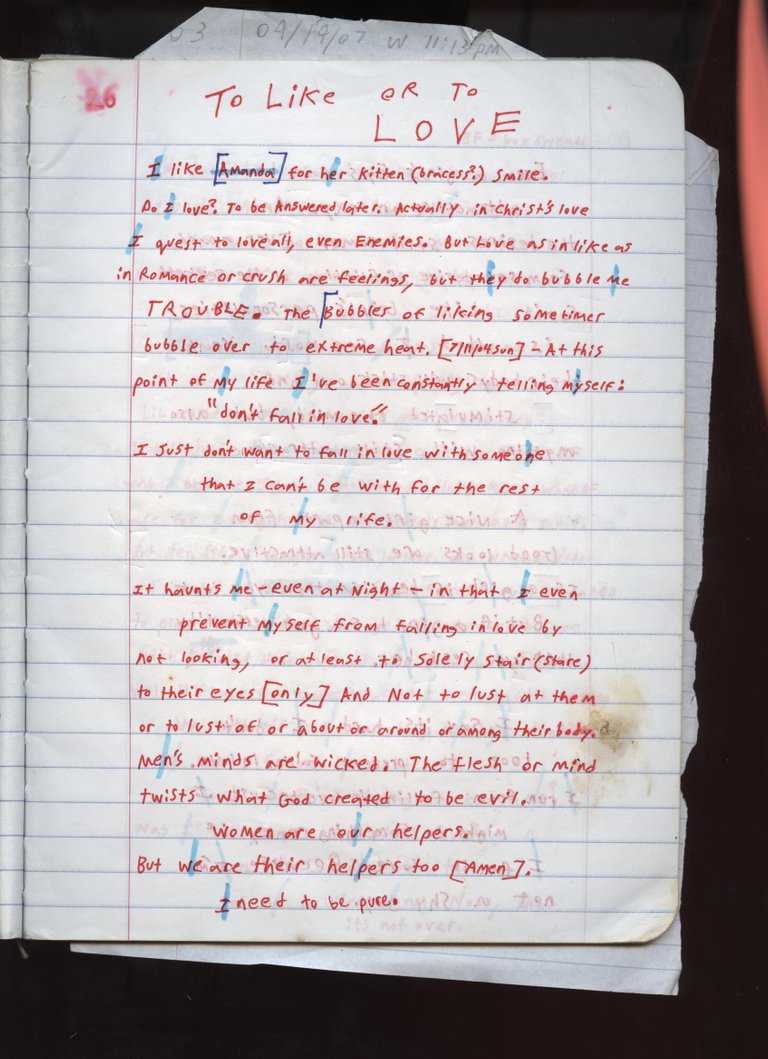 03 09/19/07 W 11:13pm
26
To Like OR To
LOVE
I like [Amanda] for her kitten (bracess?) smile.
Do I love? To be Answered later. Actually in Christ's love
I quest to love all, even Enemies. But Love as in like as
in Romance or crush are feelings, but they do bubble me
TROUBLE. The [Bubbles of liking sometimer
bubble over to extreme heat. [7/11/04 sun] - At this
point of my life I've been constantly telling myself:
"don't fall in love."
I Just don't want to fall in love with someone
that I can't be with for the rest
of my life.
It haunts me - even at Night - in that I even
prevent myself from falling in love by
not looking, or at least to solely stair (stare)
to their eyes [only] And Not to lust at them
or to lust of or about or around or among their body.
Men's minds are wicked. The flesh or mind
twists what God created to be evil.
women are our helpers.
But we are their helpers too [Amen].
I need to be pure.